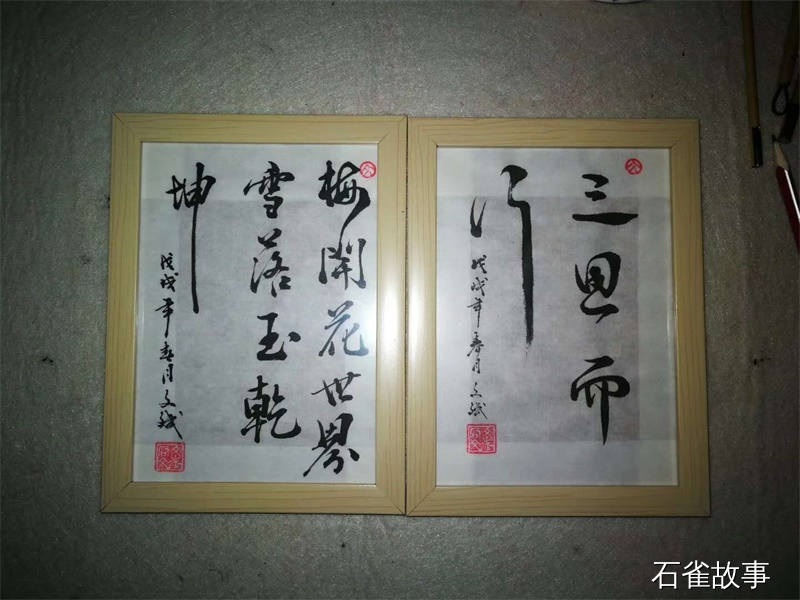 梅開花世界
雪落玉乾
坤
戊戌年春月文斌
三思而
行
戊戌年春月文斌
石雀故事